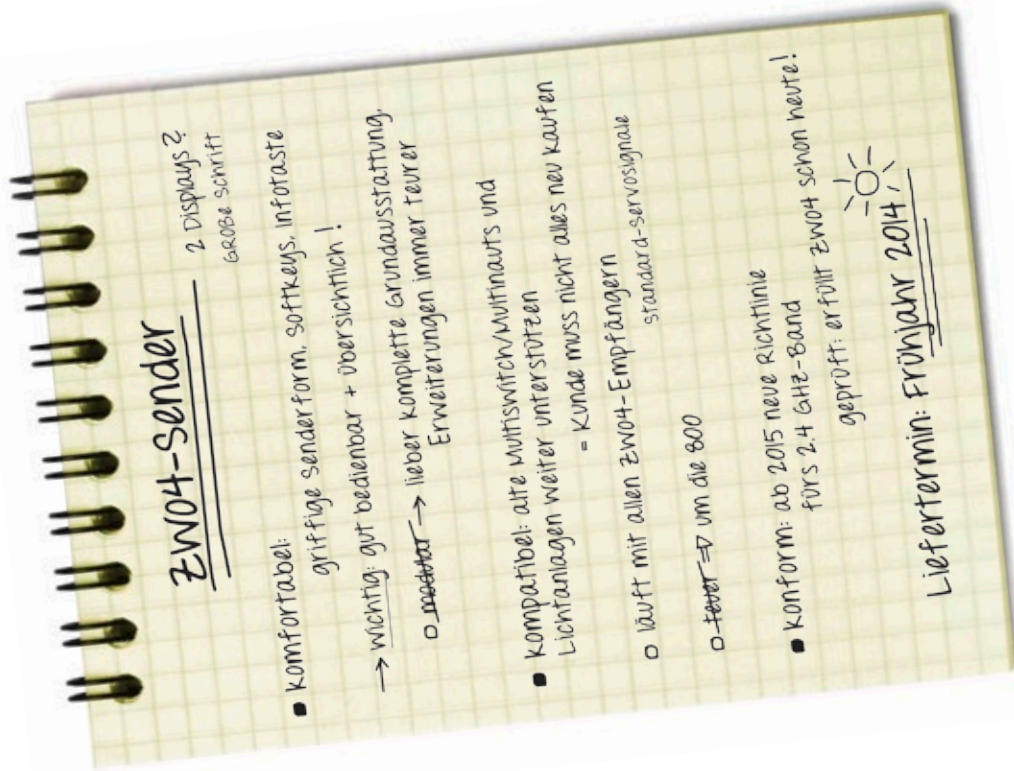 ZWO4-Sender
2 Displays?
GROßE Schrift
▪ Komfortabel:
griffige Senderform, Softkeys, Infotaste
→ Wichtig: gut bedienbar + übersichtlich!
o modular → lieber komplette Grundausstattung,
Erweiterungen immer teurer
▪ Kompatibel: alte Mutiswitch/Multinauts und
Lichtanlagen weiter unterstützen
= Kunde muss nicht alles neu kaufen
o läuft mit allen ZWO4-Empfängern
standard-servosignale
o teuer ⇒ um die 800
▪ Konform: ab 2015 neue Richtlinie
fürs 2.4 GHz-Band
geprüft: erfüllt ZWO4 schon heute!
Liefertermin: Frühjahr 2014